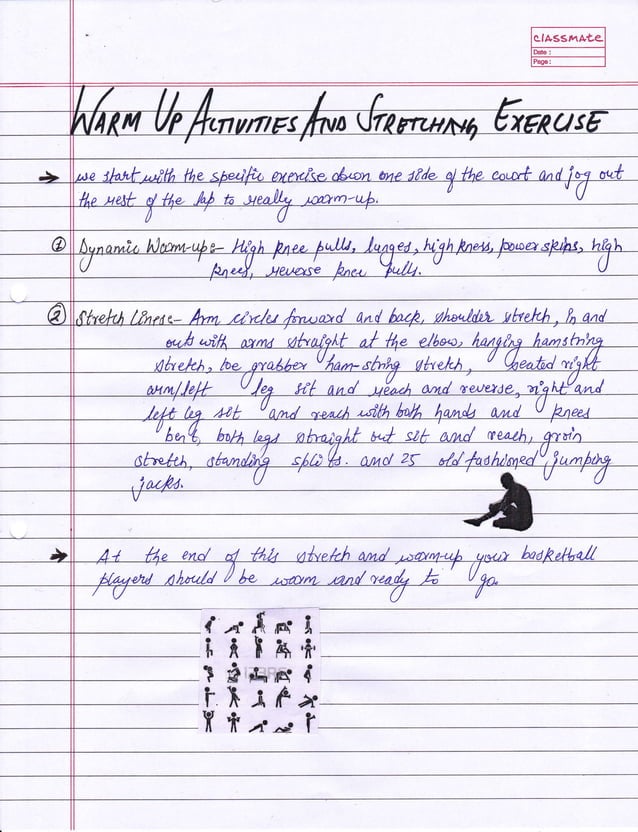 classmate
Date :
Page :
WARM UP ACTIVITIES AND STRETCHING EXERCISE
→ we start with the specific exercise down one side of the court and jog out
the rest of the lap to really warm-up.
① Dynamic Warm-ups:- High knee pulls, lunges, high kness, power skips, high
knees, reverse knee pulls.
② Stretch Lines:- Arm circles forward and back, shoulder stretch, in and
outs with arms straight at the elbow, hanging hamstring
stretch, toe grabber ham-string stretch, seated right
arm/left leg sit and reach and reverse, right and
left leg sit and reach with both hands and knees
bent, both legs straight out sit and reach, groin
stretch, standing splits. and 25 old fashioned jumping
jacks.
→ At the end of this stretch and warm-up your basketball
players should be warm and ready to go.